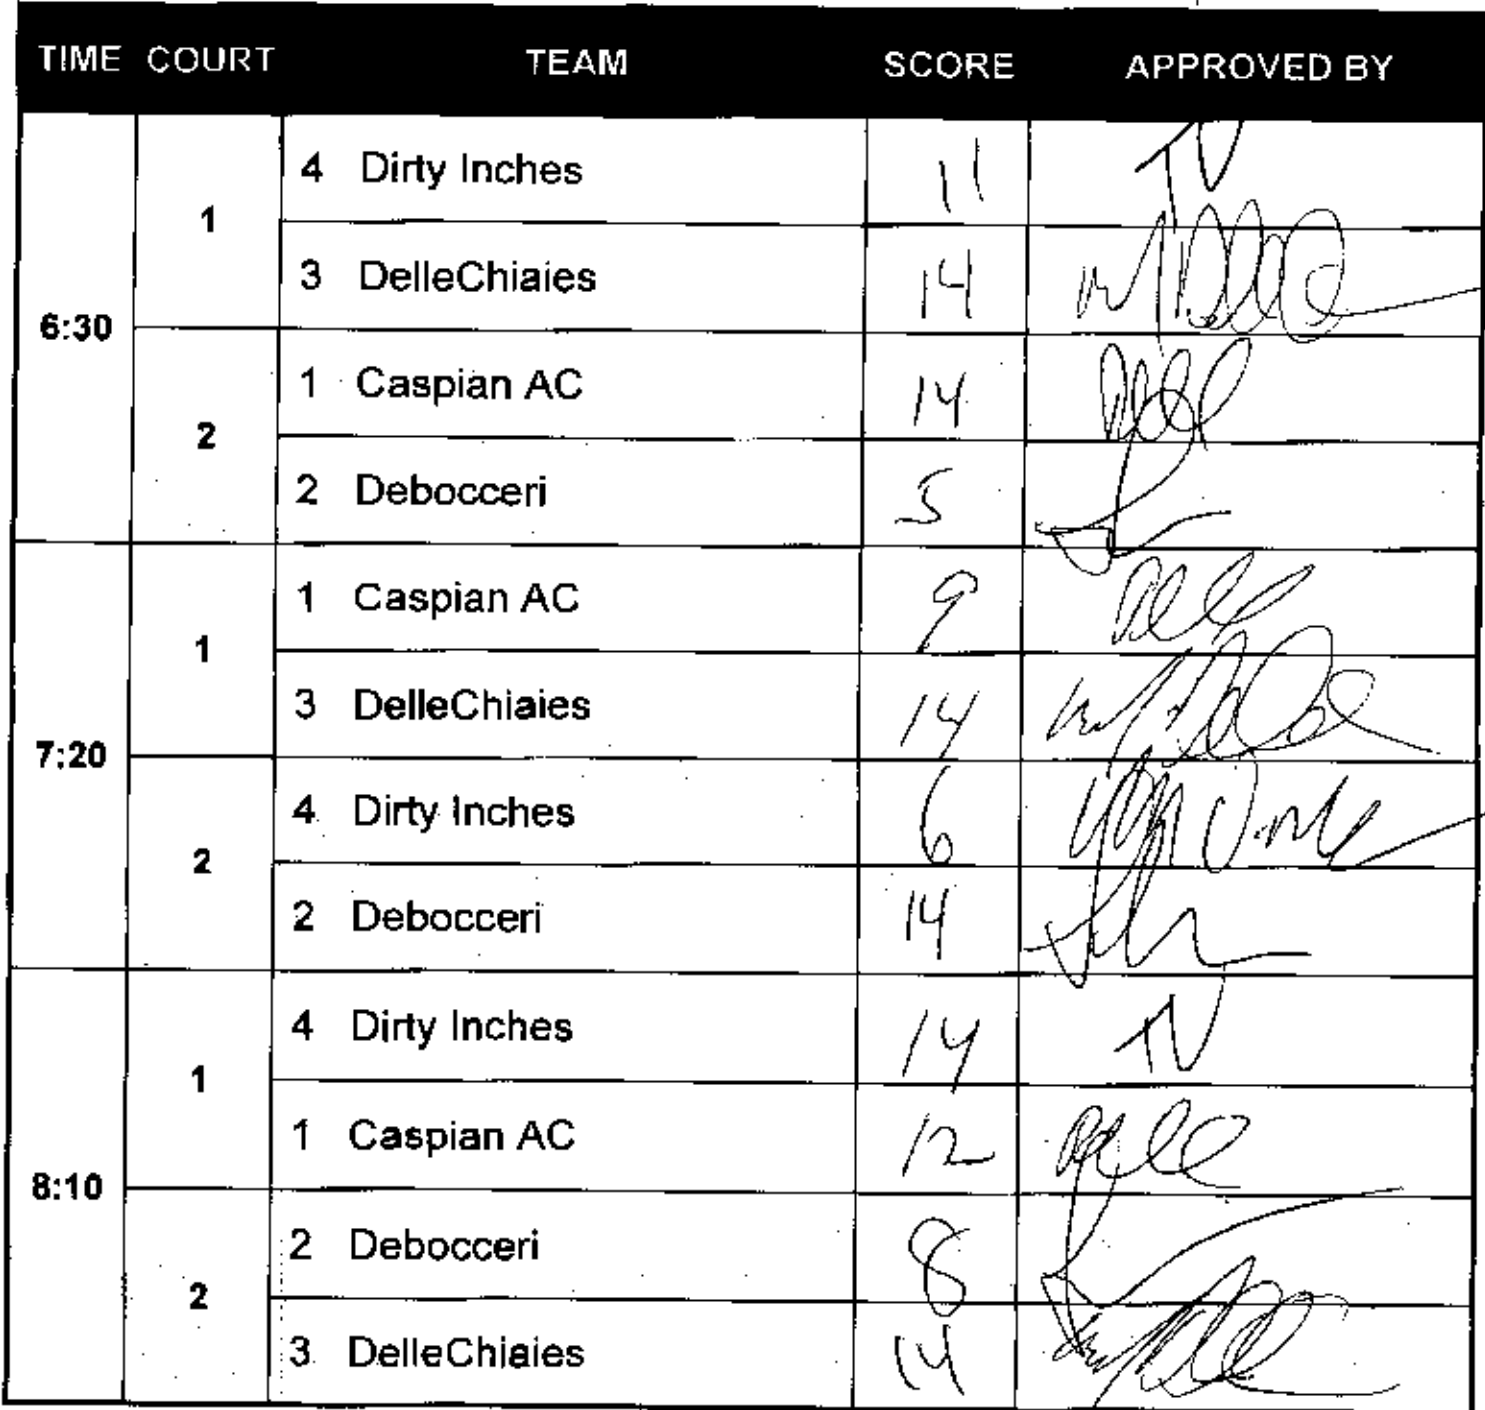 TIME COURT TEAM SCORE APPROVED BY
6:30
1
4 Dirty Inches 11 TV
3 DelleChiaies 14
2
1 Caspian AC 14
2 Debocceri 5
7:20
1
1 Caspian AC 9
3 DelleChiaies 14
2
4 Dirty Inches 6
2 Debocceri 14
8:10
1
4 Dirty Inches 14 TV
1 Caspian AC 12
2
2 Debocceri 8
3 DelleChiaies 14